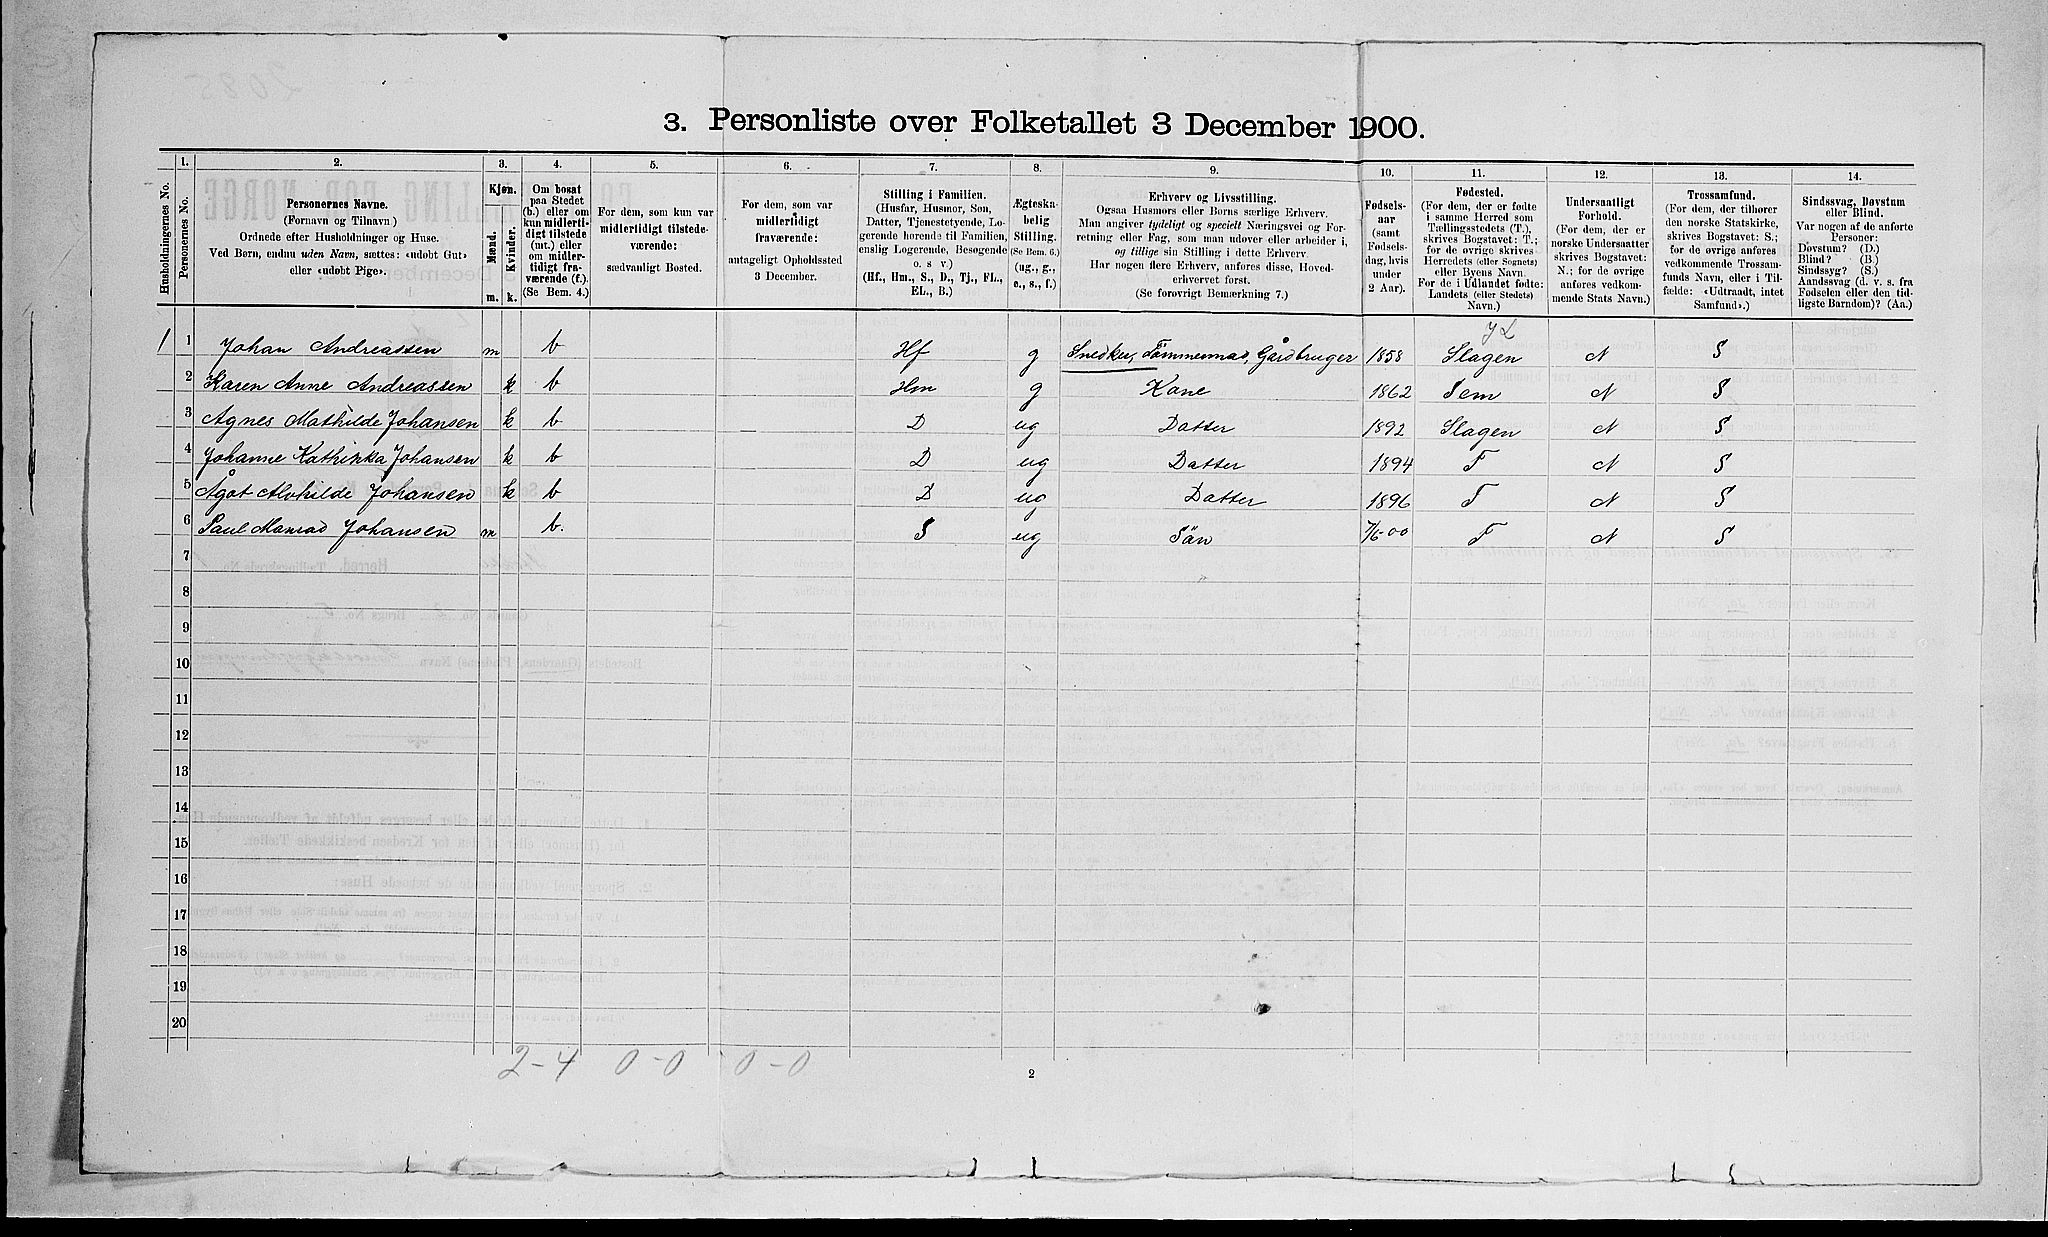 3. Personliste over Folketallet 3 December 1900.
Husholdningernes No.
1.
Personernes No.
2.
Personernes Navne.
(Fornavn og Tilnavn)
Ordnede efter Husholdninger og Huse.
Ved Børn, endnu uden Navn, sættes: «udøbt Gut»
eller «udøbt Pige».
3.
Kjøn.
Mænd.
Kvinder.
m.
k.
4.
Om bosat
paa Stedet
(b.) eller om
kun midlerti-
digt tilstede
(mt.) eller
om midler-
tidigt fra-
værende (f.).
(Se Bem. 4.)
5.
For dem, som kun var
midlertidigt tilstede-
værende:
sædvanligt Bosted.
6.
For dem, som var
midlertidigt
fraværende:
antageligt Opholdssted
3 December.
7.
Stilling i Familien.
(Husfar, Husmor, Søn,
Datter, Tjenestetyende, Lo-
gerende hørende til Familien,
enslig Logerende, Besøgende
o. s v.)
(Hf., Hm., S., D., Tj., FL.,
EL., B.)
8.
Ægteska-
belig
Stilling.
(Se Bem. 6.)
(ug., g.,
e., s., f.)
9.
Erhverv og Livsstilling.
Ogsaa Husmors eller Børns særlige Erhverv.
Man angiver tydeligt og specielt Næringsvei og For-
retning eller Fag, som man udøver eller arbeider i,
og tillige sin Stilling i dette Erhverv.
Har nogen flere Erhverv, anføres disse, Hoved-
erhvervet først.
(Se forøvrigt Bemærkning 7.)
10.
Fødsels-
aar
(samt
Fødsels-
dag, hvis
under
2 Aar).
11.
Fødested.
(For dem, der er fødte
i samme Herred som
Tællingsstedets (T.),
skrives Bogstavet: T.;
for de øvrige skrives
Herredets (eller Sognets)
eller Byens Navn.
For de i Udlandet fødte:
Landets (eller Stedets)
Navn.)
12.
Undersaatligt
Forhold.
(For dem, der er
norske Undersaatter
skrives Bogstavet:
N.; for de øvrige
anføres vedkom-
mende Stats Navn.)
13.
Trossamfund.
(For dem, der tilhører
den norske Statskirke,
skrives Bogstavet: S.;
for de øvrige anføres
vedkommende Trossam-
funds Navn, eller i Til-
fælde: «Udtraadt, intet
Samfund».)
14.
Sindssvag, Døvstum
eller Blind.
Var nogen af de anførte
Personer:
Døvstum? (D.)
Blind? (B.)
Sindssyg? (S.)
Aandssvag (d. v. s. fra
Fødselen eller den tid-
ligste Barndom)? (Aa.)
1 1 Johan Andreassen m b Hf g Snedker, Tømmermad, Gårdbruger 1858 Slagen N S
2 Karen Anne Andreassen k b Hm g Kone 1862 Sem N S
3 Agnes Mathilde Johansen k b D ug Datter 1892 Slagen N S
4 Johanne Kathinka Johansen k b D ug Datter 1894 T N S
5 Ågot Alvhilde Johansen k b D ug Datter 1896 T N S
6 Paul Manrad Johansen m b. S ug Sön 7/6-00 T N S
7
8
9
10
11
12
13
14
15
16
17
18
19
20
2-4 0-0 0-0
2